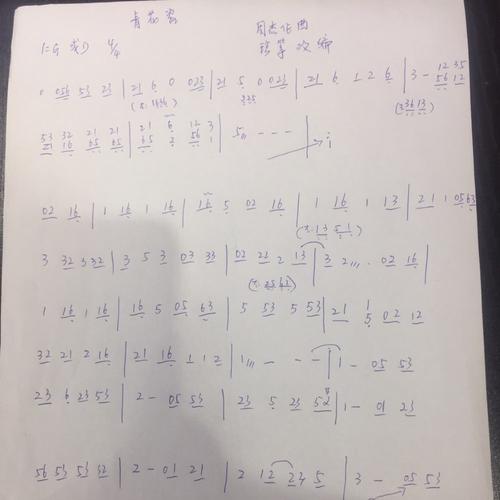 青花瓷
周杰伦曲
1=G 或D 4/4
改编
0 056 53 23 | 21 6 0 023 | 21 5 0 023 | 21 6 1 2 6 | 3 - 12 35
56 12
53 32 21 21 | 21 6 12 3
21 16 65 65 | 65 2 56 1 | 5 - - -
i
02 16 | 1 16 1 16 | 16 5 02 16 | 1 16 1 13 | 21 1 05 63
3 32 3 32 | 3 5 3 03 33 | 02 22 2 13 | 3 2 . 02 16
1 16 1 16 | 16 5 05 63 | 5 53 5 53 | 21 1 5 02 12
32 21 2 16 | 21 16 1 1 2 | 1 - - - | 1 - 05 53
23 6 23 53 | 2 - 05 53 | 23 5 23 52 | 1 - 01 23
56 53 53 32 | 2 - 01 21 | 2 12 23 5 | 3 - 05 53